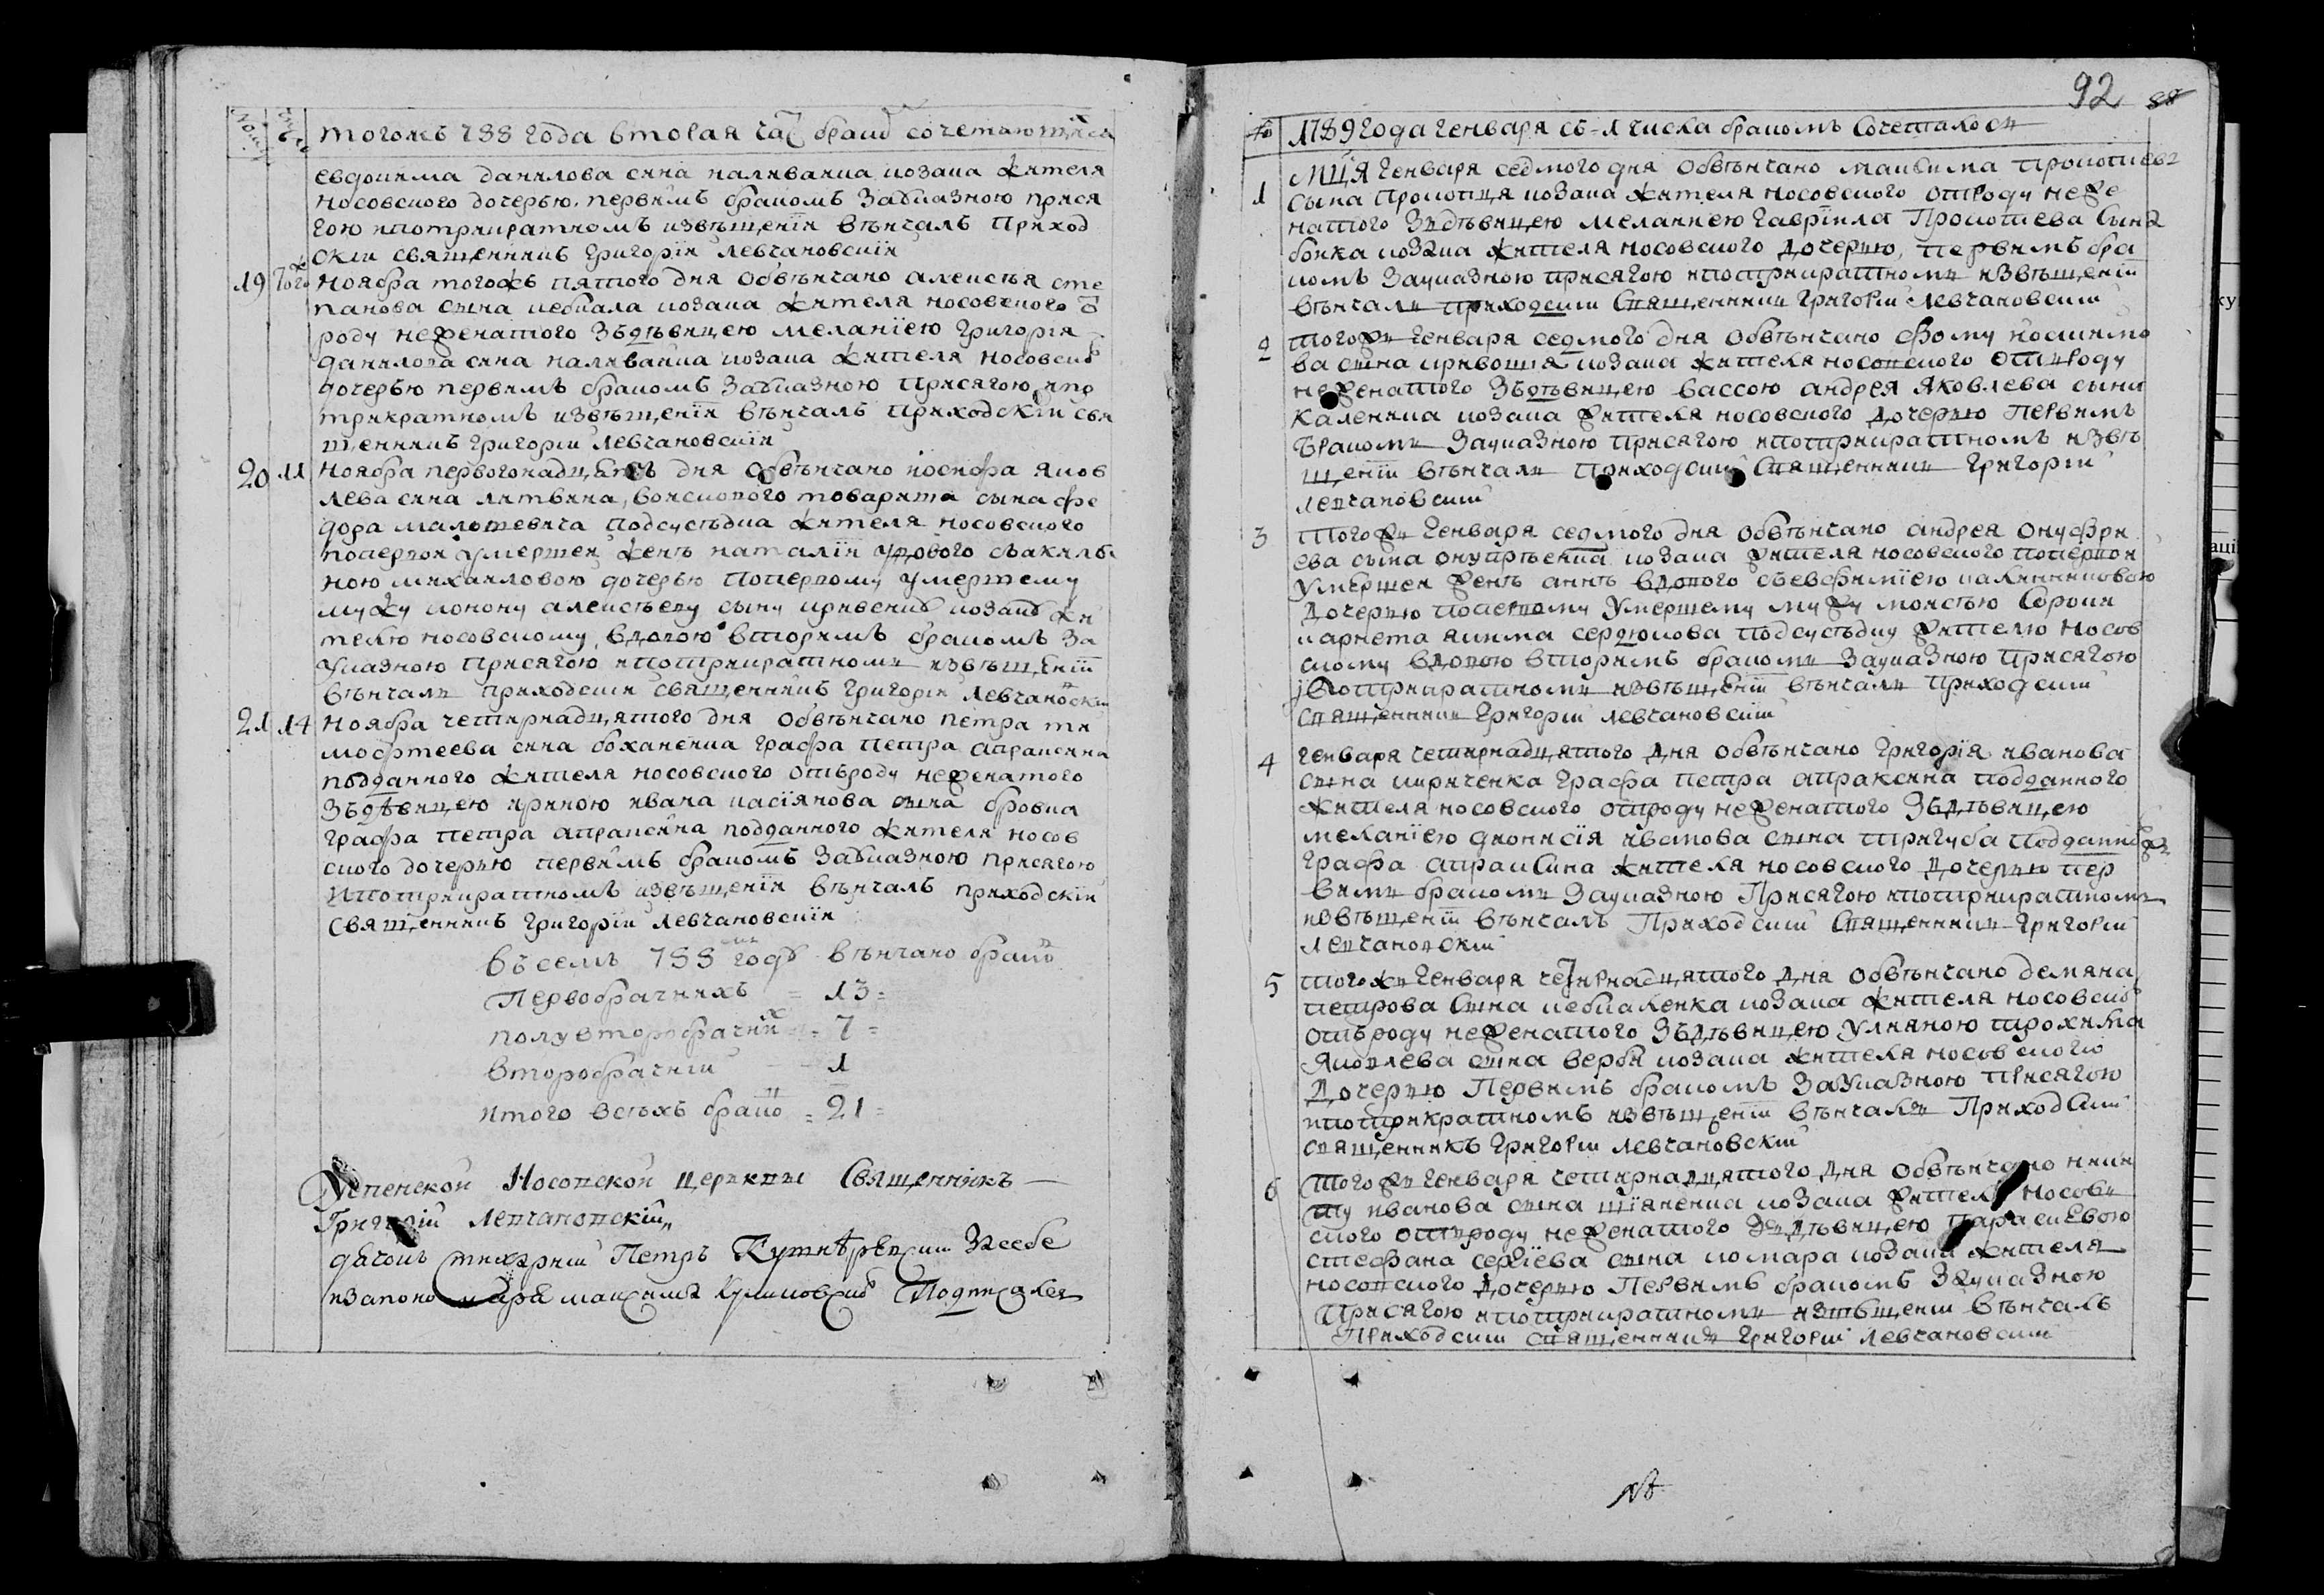 тогожъ 788 года вторая ча бракѡ сочетающихся
евдокима данилова сина наливайка козака жителя
носовского дочерью. первимъ бракомъ заѹказною прися
гою ипотрикратномъ извѣщенїи вѣнчалъ приход
скїи священникъ григорїи левчановскїи
19 ноября тогожъ пятого дня обвѣнчано алексѣя сте
панова сина цебкала козака жителя носовского ѿ
роду неженатого зъдѣвицею меланїею григорїя
данилова сина наливайка козака жителя носовско
дочерью первимъ бракомъ заѹказною присягою, ипо
трикратномъ извѣщенїи вѣнчалъ приходскїй свя
щенникъ григорїи левчановскїи
20 11 ноября первогонадцять дня обвѣнчано іосифа яков
лева сина литвина, войскового товариша сина фе
дора подсусѣдка жителя носовского
поперъвой ѹмершей женѣ наталїи удового съакили
ною михайловою дочерью поперъвому ѹмершему
мужу конону алексѣеву сину кривенкѹ козакѹ жи
телю носовскому, вдовою вторимъ бракомъ за
ѹказною присягою ипотрикратномъ извѣщенїи
вѣнчалъ приходскїи священникъ григорїи левчановскїи
21 14 ноября четирнадцятого дня обвѣнчано петра ти
мофтеева сина боханенка графа петра апраксина
подданного жителя носовского отъроду неженатого
зъдѣвицею ириною ивана касїянова сина бровка
графа петра апраксина подданного жителя носов
ского дочерью первимъ бракомъ заѹказною присягою
ипотрикратномъ извѣщенїи вѣнчалъ приходскїи
священникъ григорїи левчановскїи
въ семъ 788 годѹ вѣнчано бракѡ
первобрачнихъ = 13 =
полувторобрачних = 7 =
второбрачнїи — 1
итого всѣхъ бракѡ = 21 =
Успенской Носовской церькви Священникъ
Григорїй Левчановскїй
дячокъ Петръ засебе
изапономара максима подписалея
92
1789 года генваря съ-1 числа бракомъ сочеталося
1 мця генваря седмого дня обвѣнчано максима прокопиева
сына прокопця козака жителя носовского отроду неже
натого здѣвицею меланиею гаврїила прокопиева сына
бойка козака жителя носовского дочерью, первимъ бра
комъ заѹказною присягою ипотрикратномъ извѣщенїи
вѣнчалъ приходскїи священникъ григорїи левчановскїи
2 тогожъ генваря седмого дня обвѣнчано фому іоакимо
ва сына кривошїя козака жителя носовского отъ роду
неженатого зъдѣвицею вассою андрея яковлева сына
каленика козака жителя носовского дочерью первимъ
бракомъ заѹказною присягою ипотрикратномъ извѣ
щенїи вѣнчалъ приходскїй священникъ григорїй
левчановскїй
3 тогожъ генваря седмого дня обвѣнчано андрея онуфри
ева сына козака жителя носовского поперъвой
умершей женѣ аннѣ вдового съевфимїею
дочерью поперъвому умершему мужу
якима сердюкова подсусѣдку жителю носов
скому вдовою вторимъ бракомъ заѹказною присягою
ипотрикратномъ извѣщенїи вѣнчалъ приходскїи
священникъ григорїй левчановскїй
4 генваря четирнадцятого дня обвѣнчано григорїя иванова
сына кириченка графа петра апраксина подданного
жителя носовского отроду неженатого зъдѣвицею
меланїею дионисїя иванова сына тригуба подданног
графа апраксина жителя носовского дочерью пер
вимъ бракомъ заѹказною присягою ипотрикратномъ
извѣщенїи вѣнчалъ приходскїй священникъ григорїй
левчановскїй
5 тогожъ генваря четирнадцятого дня обвѣнчано демяна
петрова сына цебкаленка козака жителя носовско
отъроду неженатого зъдѣвицею улияною трохима
яковлева сына верби козака жителя носовского
дочерью первимъ бракомъ заѹказною присягою
ипотрикратномъ извѣщенїи вѣнчалъ приходскїй
священникъ григорїи левчановскїй
6 тогожъ генваря четирнадцятого дня обвѣнчано ники
ту иванова сына шїяненка козака жителя носов
ского отъроду неженатого зъдѣвицею параскевою
стефана сергїева сына комара козака жителя
носовского дочерью первимъ бракомъ заѹказною
присягою ипотрикратномъ извѣщенїи вѣнчалъ
приходскїи священникъ григорїй левчановскїй